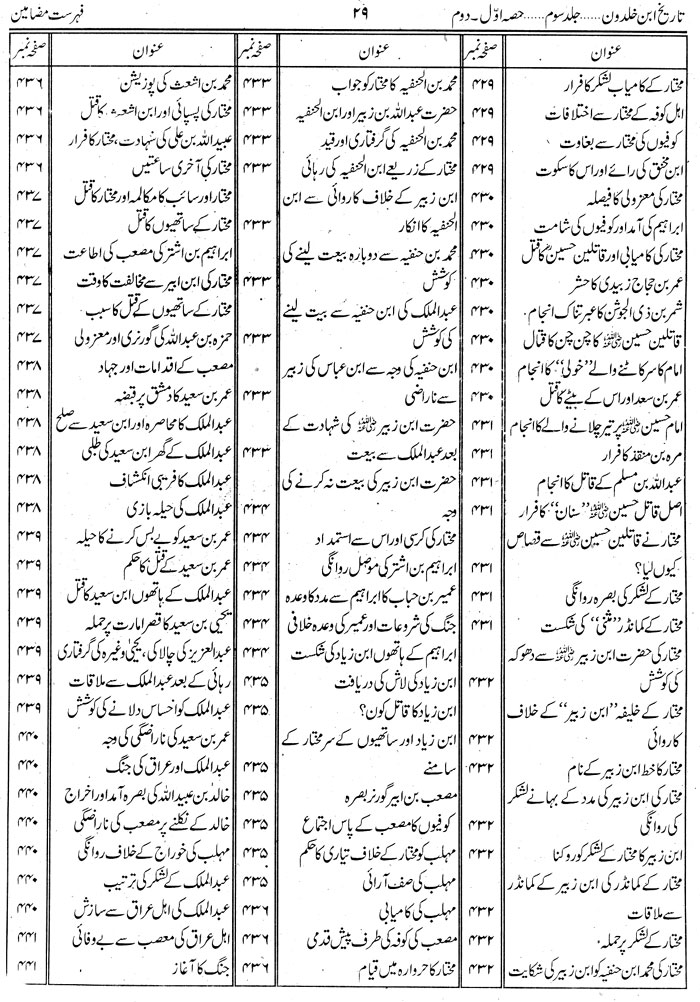 تاریخ ابن خلدون ...... جلد سوم ...... حصہ اوّل۔ دوم
۲۹
فہرست مضامین
عنوان
صفحہ نمبر
مختار کے کامیاب لشکر کا فرار ۴۲۹
اہل کوفہ کے مختار سے اختلافات ۴۲۹
کوفیوں کی مختار سے بغاوت ۴۲۹
ابن مخنق کی رائے اور اس کا سکوت ۴۲۹
مختار کی معزولی کا فیصلہ ۴۳۰
ابراہیم کی آمد اور کوفیوں کی شامت ۴۳۰
مختار کی کامیابی اور قاتلین حسین کا قتل ۴۳۰
عمر بن حجاج زبیدی کا حشر ۴۳۰
شمر بن ذی الجوشن کا عبرتناک انجام ۴۳۰
قاتلین حسین ﷺ کا چن چن کا قتال ۴۳۰
امام کا سر کاٹنے والے ”خولی“ کا انجام ۴۳۰
عمر بن سعد اور اس کے بیٹے کا قتل ۴۳۰
امام حسین ﷺ پر تیر چلانے والے کا انجام ۴۳۱
مرہ بن منقذ کا فرار ۴۳۱
عبداللہ بن مسلم کے قاتل کا انجام ۴۳۱
اصل قاتل حسین ﷺ ”سنان“ کا فرار ۴۳۱
مختار نے قاتلین حسین ﷺ سے قصاص
کیوں لیا؟ ۴۳۱
مختار کے لشکر کی بصرہ روانگی ۴۳۱
مختار کے کمانڈر ”مثنی“ کی شکست ۴۳۱
مختار کی حضرت ابن زبیر ﷺ سے دھوکہ
کی کوشش ۴۳۲
مختار کے خلیفہ ”ابن زبیر“ کے خلاف
کاروائی ۴۳۲
مختار کا خط ابن زبیر کے نام ۴۳۲
مختار کی ابن زبیر کی مدد کے بہانے لشکر
کی روانگی ۴۳۲
ابن زبیر کا مختار کے لشکر کو روکنا ۴۳۲
مختار کے کمانڈر کی ابن زبیر کے کمانڈر
سے ملاقات ۴۳۲
مختار کے لشکر پر حملہ ۴۳۲
مختار کی محمد ابن حنفیہ کو ابن زبیر کی شکایت ۴۳۲
عنوان
صفحہ نمبر
محمد بن الحنفیہ کا مختار کو جواب ۴۳۳
حضرت عبداللہ بن زبیر اور ابن الحنفیہ ۴۳۳
محمد بن الحنفیہ کی گرفتاری اور قید ۴۳۳
مختار کے ذریعے ابن الحنفیہ کی رہائی ۴۳۳
ابن زبیر کے خلاف کاروائی سے ابن
الحنفیہ کا انکار ۴۳۳
محمد بن حنفیہ سے دوبارہ بیعت لینے کی
کوشش ۴۳۳
عبدالملک کی ابن حنفیہ سے بیت لینے
کی کوشش ۴۳۳
ابن حنفیہ کی وجہ سے ابن عباس کی زبیر
سے ناراضی ۴۳۳
حضرت ابن زبیر ﷺ کی شہادت کے
بعد عبدالملک سے بیعت ۴۳۳
حضرت ابن زبیر کی بیعت نہ کرنے کی
وجہ ۴۳۴
مختار کی کرسی اور اس سے استمداد ۴۳۴
ابراہیم بن اشتر کی موصل روانگی ۴۳۴
عمیر بن حباب کا ابراہیم سے مدد کا وعدہ ۴۳۴
جنگ کی شروعات اور عمیر کی وعدہ خلافی ۴۳۴
ابراہیم کے ہاتھوں ابن زیاد کی شکست ۴۳۴
ابن زیاد کی لاش کی دریافت ۴۳۵
ابن زیاد کا قاتل کون؟ ۴۳۵
ابن زیاد اور ساتھیوں کے سر مختار کے
سامنے ۴۳۵
مصعب بن ابیر گورنر بصرہ ۴۳۵
کوفیوں کا مصعب کے پاس اجتماع ۴۳۵
مہلب کو مختار کے خلاف تیاری کا حکم ۴۳۵
مہلب کی صف آرائی ۴۳۵
مہلب کی کامیابی ۴۳۶
مصعب کی کوفہ کی طرف پیش قدمی ۴۳۶
مختار کا حروارہ میں قیام ۴۳۶
عنوان
صفحہ نمبر
محمد بن اشعث کی پوزیشن ۴۳۶
مختار کی پسپائی اور ابن اشعث کا قتل ۴۳۶
عبیداللہ بن علی کی شہادت، مختار کا فرار ۴۳۶
مختار کی آخری ساعتیں ۴۳۶
مختار اور سائب کا مکالمہ اور مختار کا قتل ۴۳۷
مختار کے ساتھیوں کا قتل ۴۳۷
ابراہیم بن اشتر کی مصعب کی اطاعت ۴۳۷
مختار کی ابن ابیر سے مخالفت کا وقت ۴۳۷
مختار کے ساتھیوں کے قتل کا سبب ۴۳۷
حمزہ بن عبداللہ کی گورنری اور معزولی ۴۳۷
مصعب کے اقدامات اور جہاد ۴۳۸
عمر بن سعید کا دمشق پر قبضہ ۴۳۸
عبدالملک کا محاصرہ اور ابن سعید سے صلح ۴۳۸
عبدالملک کے گھر ابن سعید کی طلبی ۴۳۸
عبدالملک کا فریبی انکشاف ۴۳۸
عبدالملک کی حیلہ بازی ۴۳۸
عمر بن سعید کو بے بس کرنے کا حیلہ ۴۳۹
عمر بن سعید کے قتل کا حکم ۴۳۹
عبدالملک کے ہاتھوں ابن سعید کا قتل ۴۳۹
یحییٰ بن سعید کا قصر امارت پر حملہ ۴۳۹
عبدالعزیز کی چالاکی، یحییٰ وغیرہ کی گرفتاری ۴۳۹
رہائی کے بعد عبدالملک سے ملاقات ۴۳۹
عبدالملک کو احساس دلانے کی کوشش ۴۳۹
عمر بن سعید کی ناراضگی کی وجہ ۴۴۰
عبدالملک اور عراق کی جنگ ۴۴۰
خالد بن عبیداللہ کی بصرہ آمد اور اخراج ۴۴۰
خالد کے نکلنے پر مصعب کی ناراضگی ۴۴۰
مہلب کی خوراج کے خلاف روانگی ۴۴۰
عبدالملک کے لشکر کی ترتیب ۴۴۰
عبدالملک کی اہل عراق سے سازش ۴۴۰
اہل عراق کی معصب سے بے وفائی ۴۴۱
جنگ کا آغاز ۴۴۱